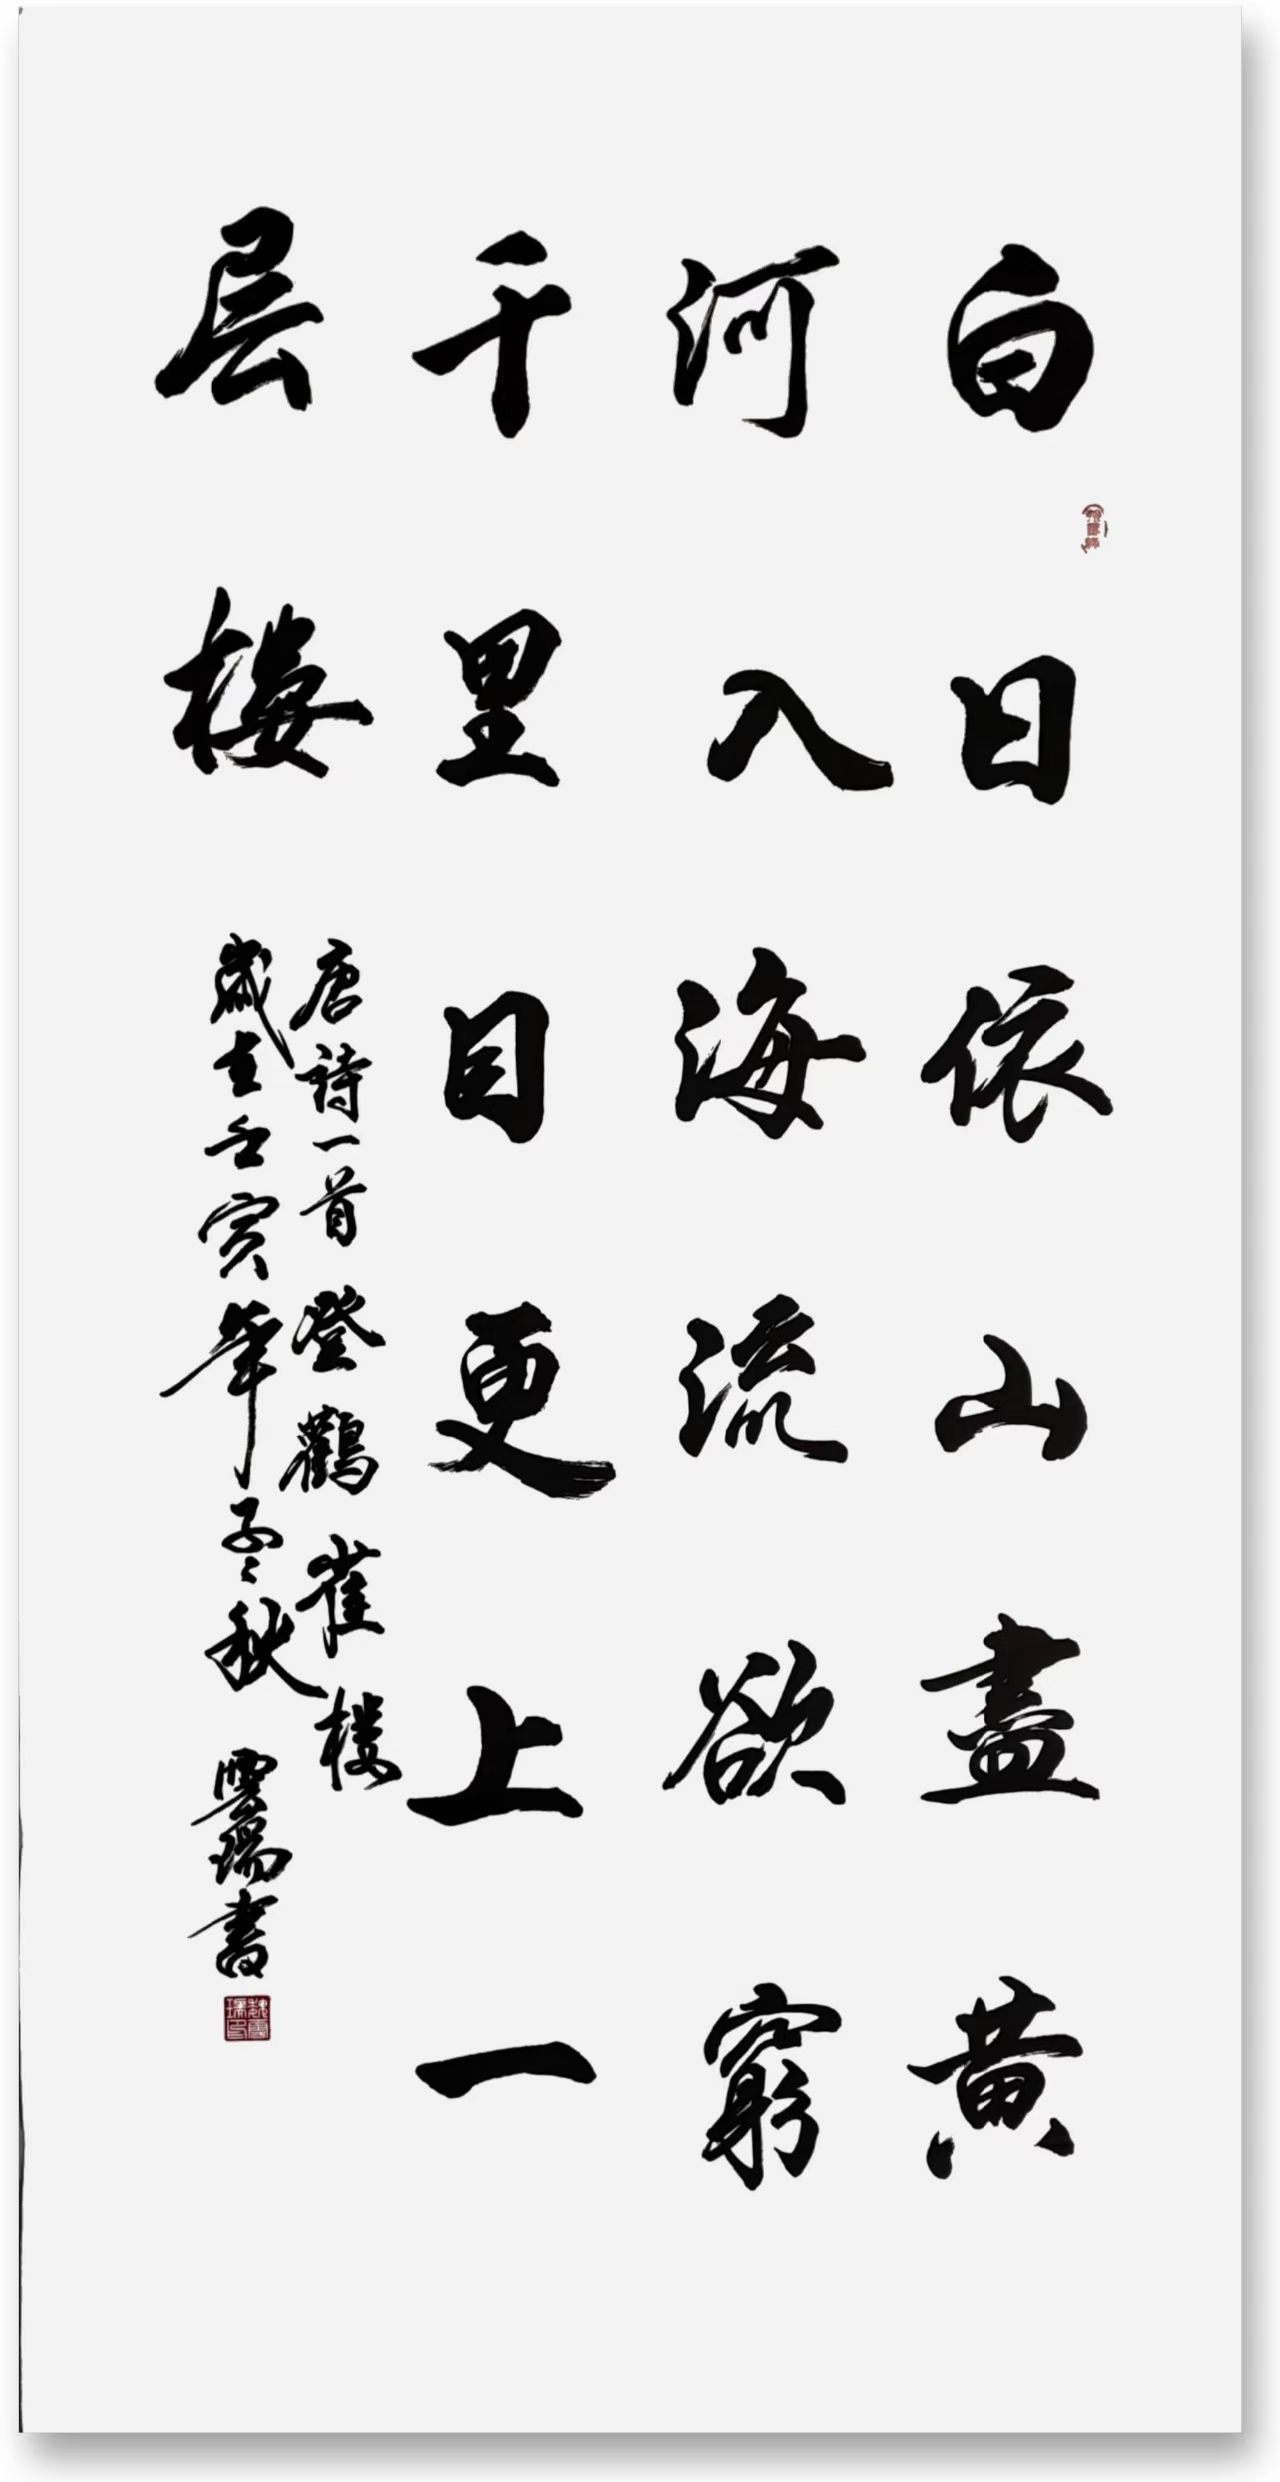 白日依山盡黄
河入海流欲窮
千里目更上一
层楼
唐詩一首登鸛雀楼
歲在壬寅年孟秋 雲瑞書
魏雲瑞印